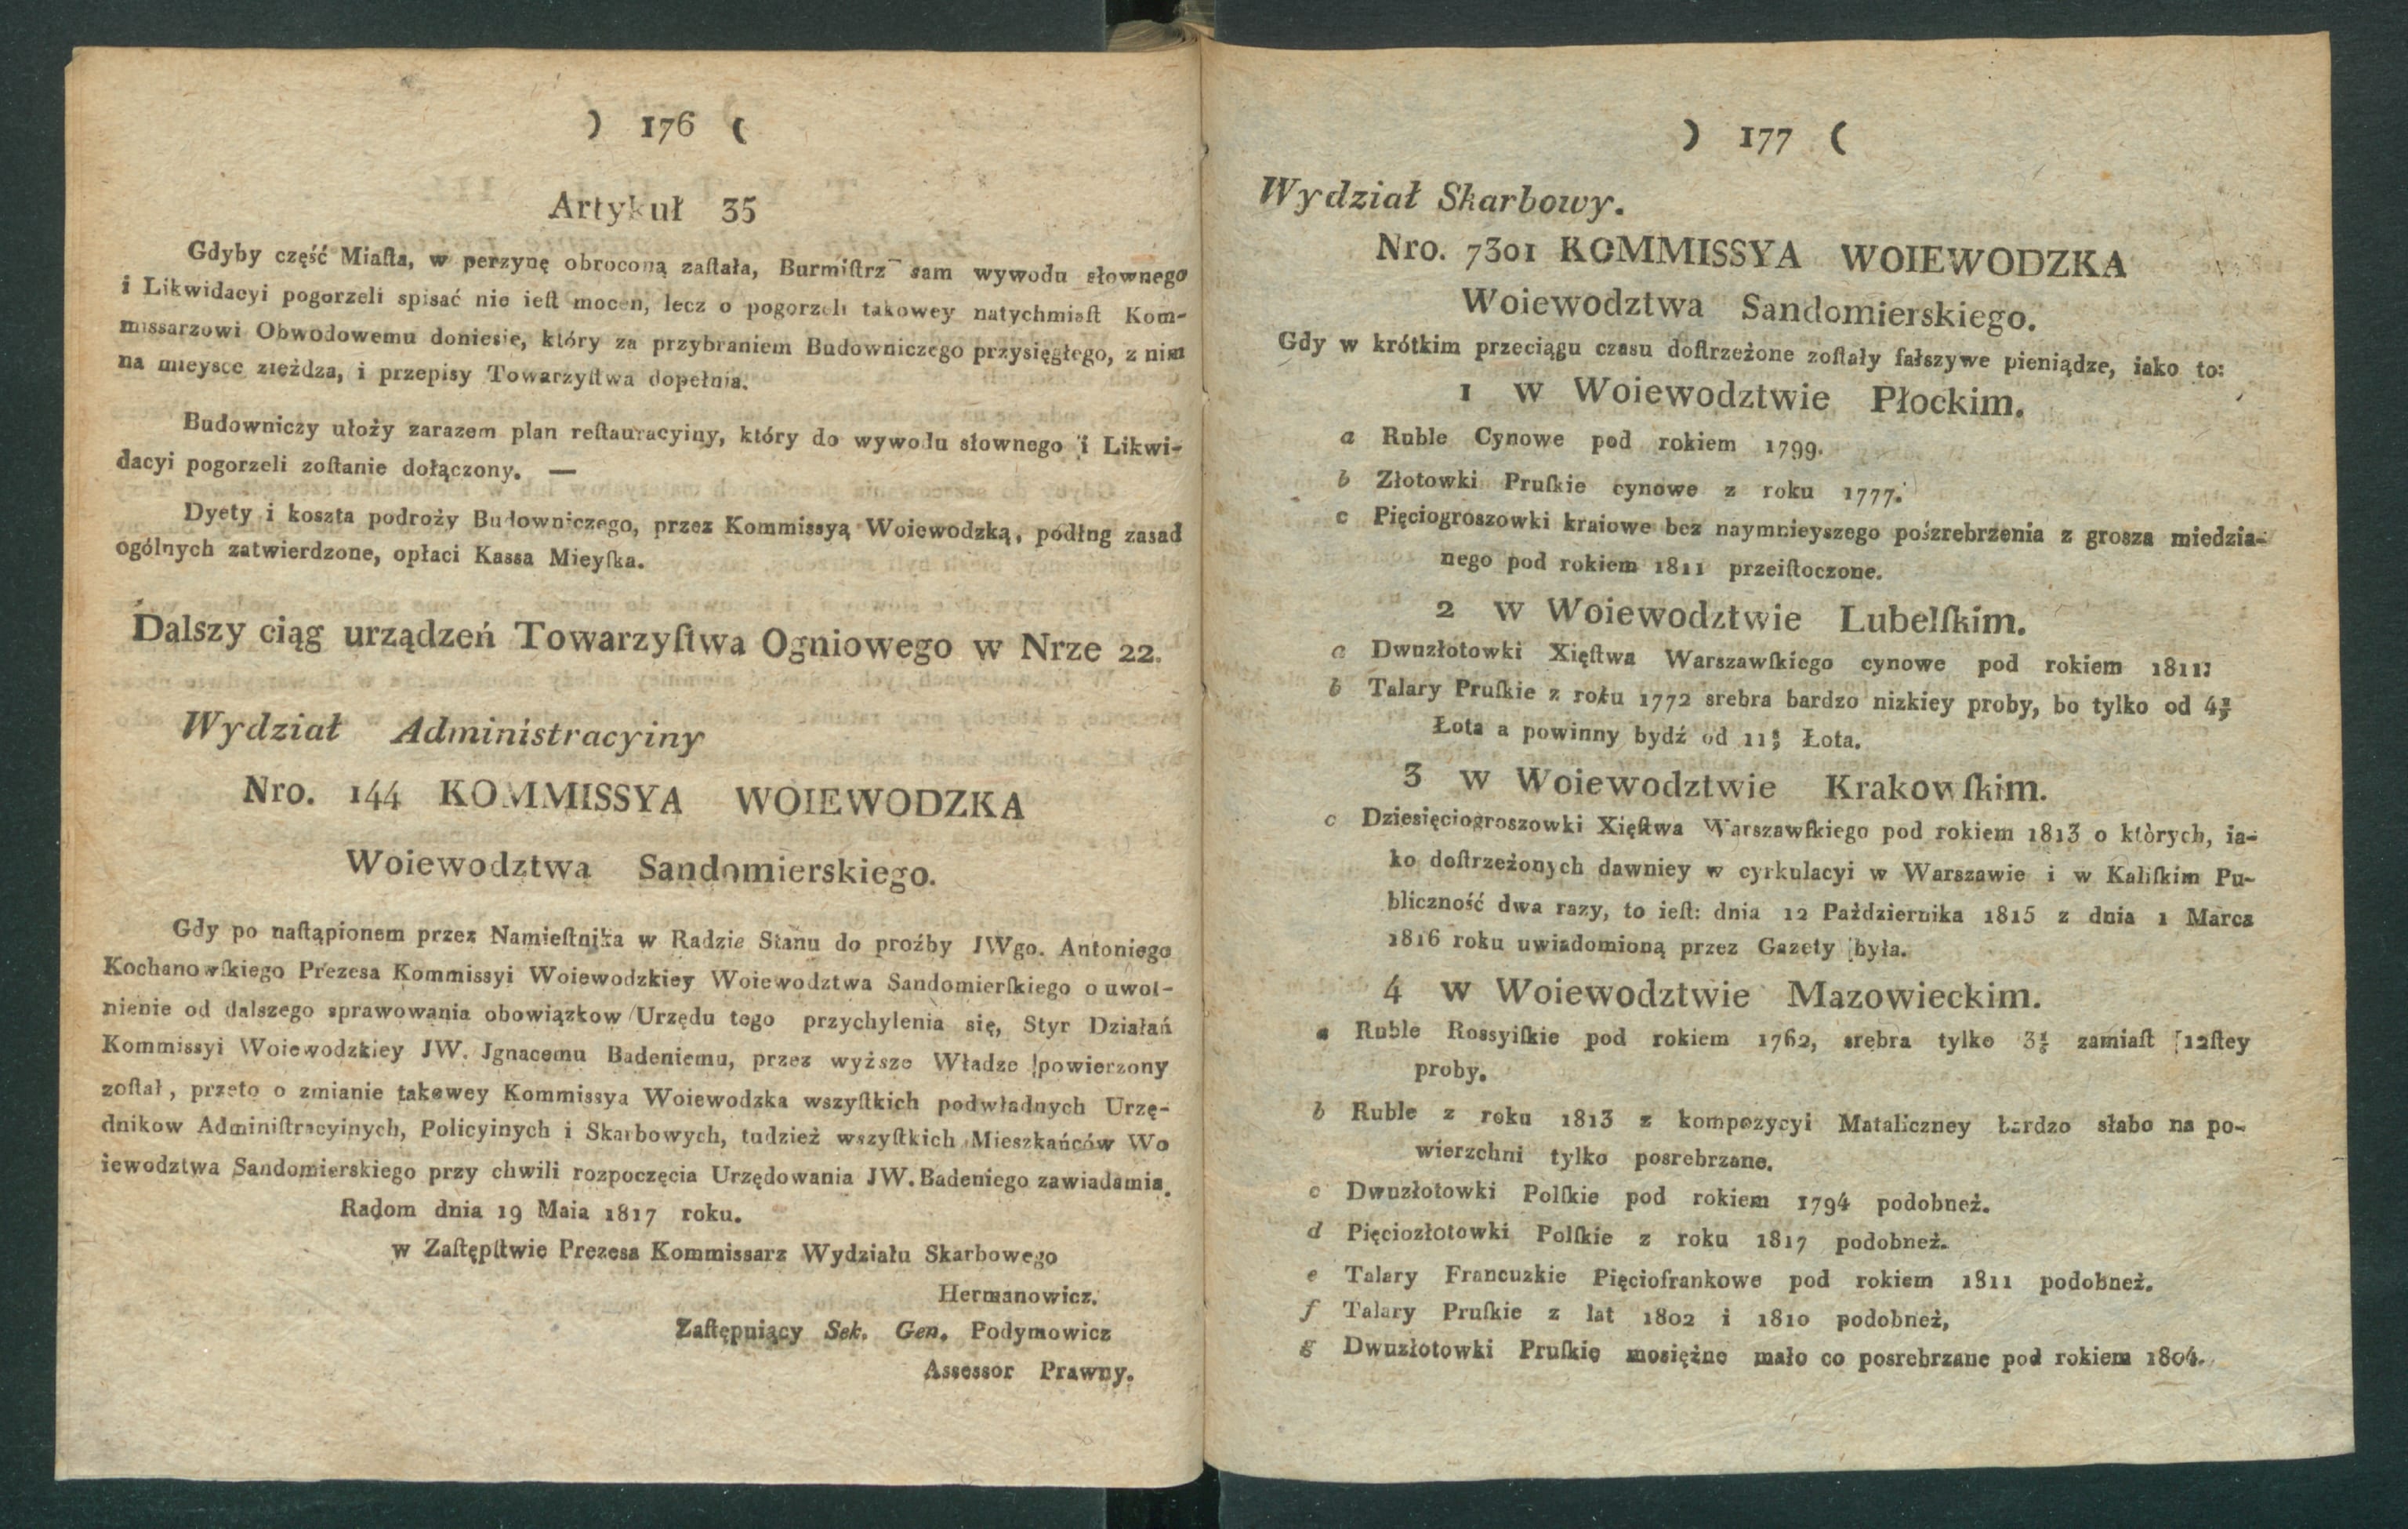 ) 176 (
Artykuł 35
Gdyby część Miaſta, w perzynę obroconą zaſtała, Burmiſtrz sam wywodu słownego
i Likwidacyi pogorzeli spisać nie ieſt mocen, lecz o pogorzeli takowey natychmiaſt Kom-
missarzowi Obwodowemu doniesie, który za przybraniem Budowniczego przysięgłego, z nim
na mieysce zieżdza, i przepisy Towarzyſtwa dopełnia.
Budowniczy ułoży zarazem plan reſtauracyiny, który do wywodu słownego i Likwi-
dacyi pogorzeli zoſtanie dołączony. —
Dyety i koszta podroży Budowniczego, przez Kommissyą Woiewodzką, podłng zasad
ogólnych zatwierdzone, opłaci Kassa Mieyſka.
Dalszy ciąg urządzeń Towarzyſtwa Ogniowego w Nrze 22.
Wydział Administracyiny
Nro. 144 KOMMISSYA WOIEWODZKA
Woiewodztwa Sandomierskiego.
Gdy po naſtąpionem przez Namieſtnika w Radzie Stanu do proźby JWgo. Antoniego
Kochanowſkiego Prezesa Kommissyi Woiewodzkiey Woiewodztwa Sandomierſkiego o uwol-
nienie od dalszego sprawowania obowiązkow Urzędu tego przychylenia się, Styr Działań
Kommissyi Woiewodzkiey JW. Jgnacemu Badeniemu, przez wyższe Władze powierzony
zoſtał, przeto o zmianie takowey Kommissya Woiewodzka wszyſtkich podwładnych Urzę-
dnikow Adminiſtracyinych, Policyinych i Skarbowych, tudzież wszyſtkich Mieszkańców Wo
iewodztwa Sandomierskiego przy chwili rozpoczęcia Urzędowania JW. Badeniego zawiadamia.
Radom dnia 19 Maia 1817 roku.
w Zaſtępſtwie Prezesa Kommissarz Wydziału Skarbowego
Hermanowicz.
Zaſtępuiący Sek. Gen. Podymowicz
Assessor Prawny.
) 177 (
Wydział Skarbowy.
Nro. 7301 KOMMISSYA WOIEWODZKA
Woiewodztwa Sandomierskiego.
Gdy w krótkim przeciągu czasu doſtrzeżone zoſtały fałszywe pieniądze, iako to:
1 w Woiewodztwie Płockim.
a Ruble Cynowe pod rokiem 1799.
b Złotowki Pruſkie cynowe z roku 1777.
c Pięciogroszowki kraiowe bez naymnieyszego pośzrebrzenia z grosza miedzia-
nego pod rokiem 1811 przeiſtoczone.
2 w Woiewodztwie Lubelſkim.
a Dwuzłotowki Xięſtwa Warszawſkiego cynowe pod rokiem 1811:
b Talary Pruſkie z roku 1772 srebra bardzo nizkiey proby, bo tylko od 4
Łota a powinny bydź od 11 Łota.
3 w Woiewodztwie Krakowſkim.
c Dziesięciogroszowki Xięſtwa Warszawſkiego pod rokiem 1813 o których, ia-
ko doſtrzeżonych dawniey w cyrkulacyi w Warszawie i w Kaliſkim Pu-
bliczność dwa razy, to ieſt: dnia 12 Października 1815 z dnia 1 Marca
1816 roku uwiadomioną przez Gazety była.
4 w Woiewodztwie Mazowieckim.
a Ruble Rossyiſkie pod rokiem 1762, srebra tylko 3 zamiaſt 12ſtey
proby.
b Ruble z roku 1813 z kompozycyi Mataliczney bardzo słabo na po-
wierzchni tylko posrebrzane.
c Dwuzłotowki Polſkie pod rokiem 1794 podobnež.
d Pięciozłotowki Polſkie z roku 1817 podobnež.
e Talary Francuzkie Pięciofrankowe pod rokiem 1811 podobnež.
f Talary Pruſkie z lat 1802 i 1810 podobneż,
g Dwuzłotowki Pruſkie mosiężne mało co posrebrzane pod rokiem 1804.